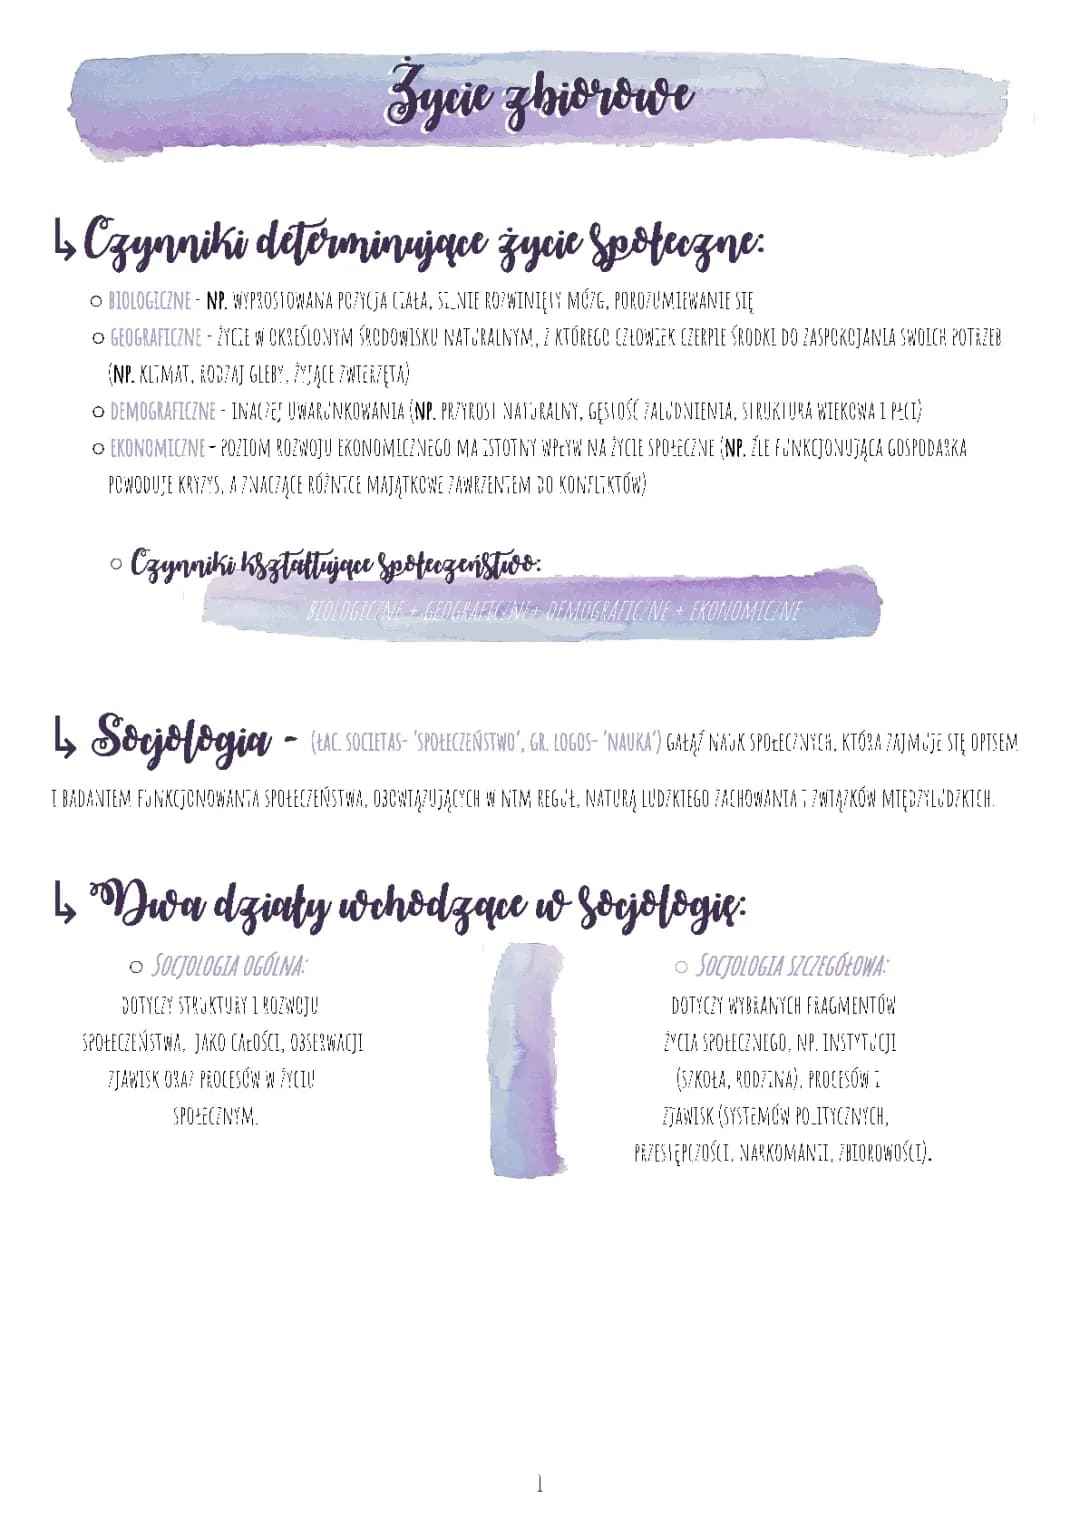 Życie zbiorowe
↳ Czynniki determinujące życie społeczne:
○ BIOLOGICZNE - NP. WYPROSTOWANA POZYCJA CIAŁA, SILNIE ROZWINIĘTY MÓZG, POROZUMIEWANIE SIĘ
○ GEOGRAFICZNE - ŻYCIE W OKREŚLONYM ŚRODOWISKU NATURALNYM, Z KTÓREGO CZŁOWIEK CZERPIE ŚRODKI DO ZASPOKOJANIA SWOICH POTRZEB
(NP. KLIMAT, RODZAJ GLEBY, ŻYJĄCE ZWIERZĘTA)
○ DEMOGRAFICZNE - INACZEJ UWARUNKOWANIA (NP. PRZYROST NATURALNY, GĘSTOŚĆ ZALUDNIENIA, STRUKTURA WIEKOWA I PŁCI)
○ EKONOMICZNE - POZIOM ROZWOJU EKONOMICZNEGO MA ISTOTNY WPŁYW NA ŻYCIE SPOŁECZNE (NP. ŹLE FUNKCJONUJĄCA GOSPODARKA
POWODUJE KRYZYS, A ZNACZĄCE RÓŻNICE MAJĄTKOWE ZAWRZENIEM DO KONFLIKTÓW)
○ Czynniki kształtujące społeczeństwo:
BIOLOGICZNE + GEOGRAFICZNE + DEMOGRAFICZNE + EKONOMICZNE
↳ Socjologia - (ŁAC. SOCIETAS- 'SPOŁECZEŃSTWO', GR. LOGOS- 'NAUKA') GAŁĄŹ NAUK SPOŁECZNYCH, KTÓRA ZAJMUJE SIĘ OPISEM
I BADANIEM FUNKCJONOWANIA SPOŁECZEŃSTWA, OBOWIĄZUJĄCYCH W NIM REGUŁ, NATURĄ LUDZKIEGO ZACHOWANIA I ZWIĄZKÓW MIĘDZYLUDZKICH.
↳ Dwa działy wchodzące w socjologię:
○ SOCJOLOGIA OGÓLNA:
DOTYCZY STRUKTURY I ROZWOJU
SPOŁECZEŃSTWA, JAKO CAŁOŚCI, OBSERWACJI
ZJAWISK ORAZ PROCESÓW W ŻYCIU
SPOŁECZNYM.
○ SOCJOLOGIA SZCZEGÓŁOWA:
DOTYCZY WYBRANYCH FRAGMENTÓW
ŻYCIA SPOŁECZNEGO, NP. INSTYTUCJI
(SZKOŁA, RODZINA), PROCESÓW I
ZJAWISK (SYSTEMÓW POLITYCZNYCH,
PRZESTĘPCZOŚCI, NARKOMANII, ZBIOROWOŚCI).
1